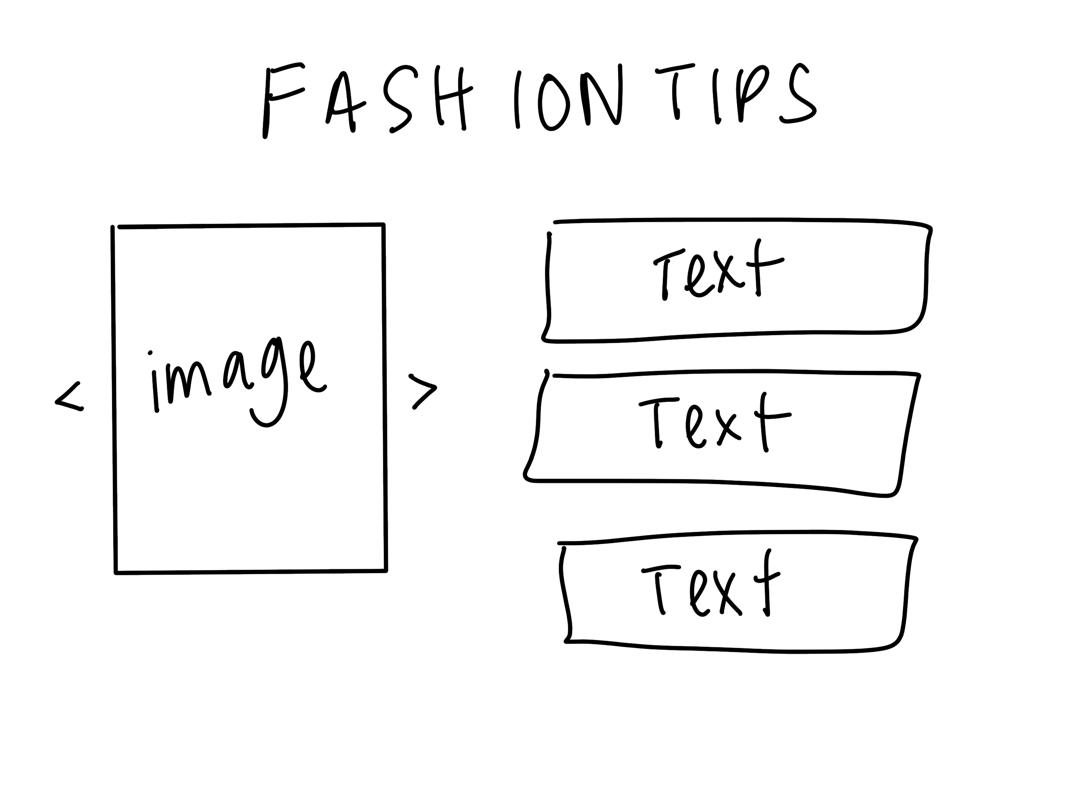 FASHION TIPS
< image >
Text
Text
Text